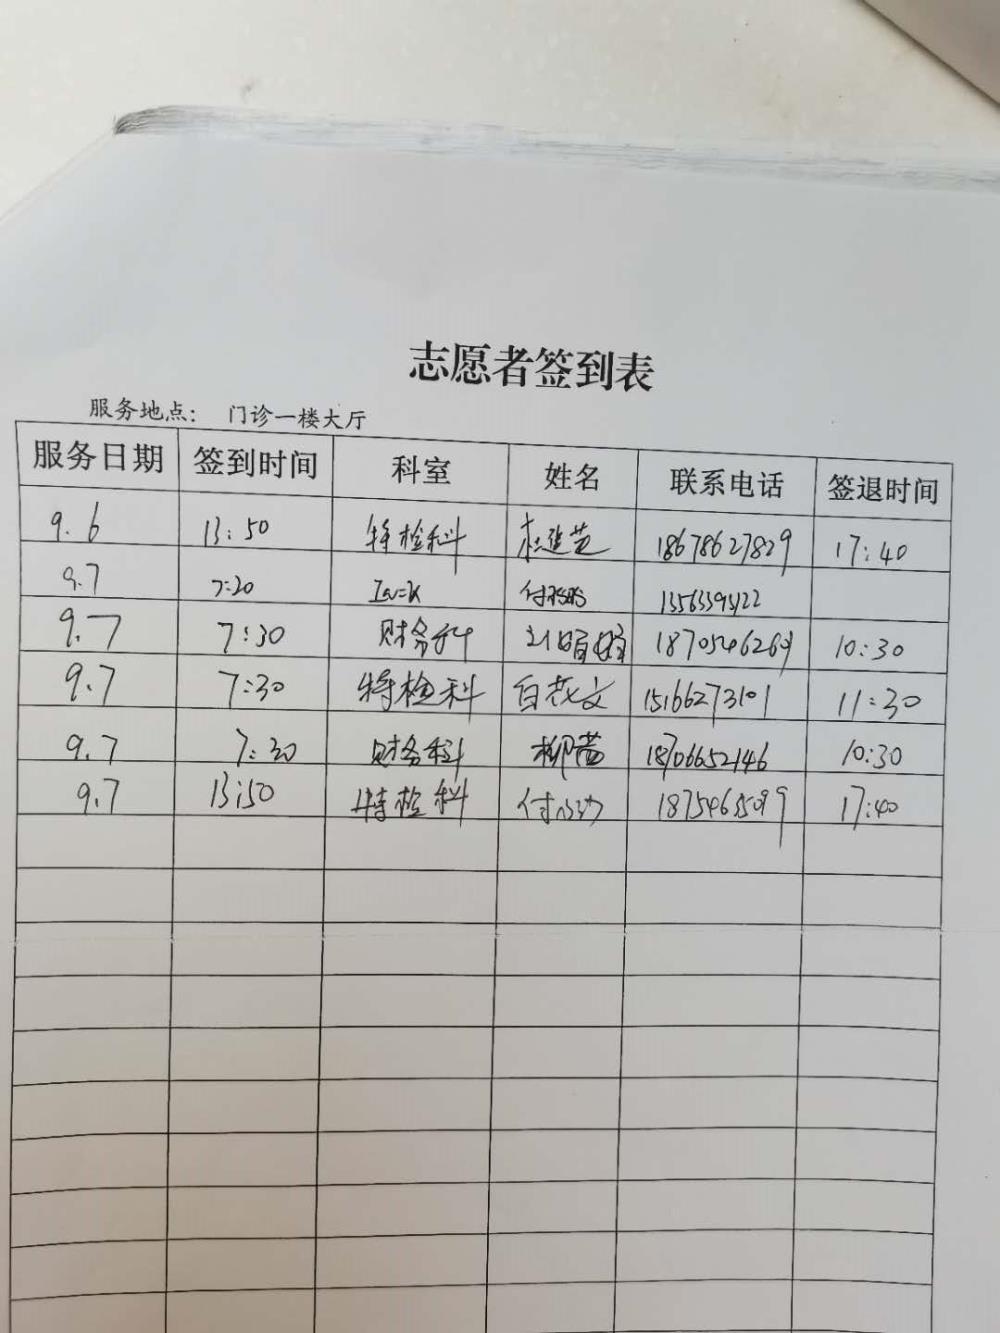 志愿者签到表
服务地点： 门诊一楼大厅
服务日期 签到时间 科室 姓名 联系电话 签退时间
9.6 13:50 特检科 18678627829 17:40
9.7 7:20
9.7 7:30 财务科 10:30
9.7 7:30 特检科 白茂文 15166273101 11:30
9.7 7:30 财务科 柳蕾 18706652146 10:30
9.7 13:50 特检科 17:40